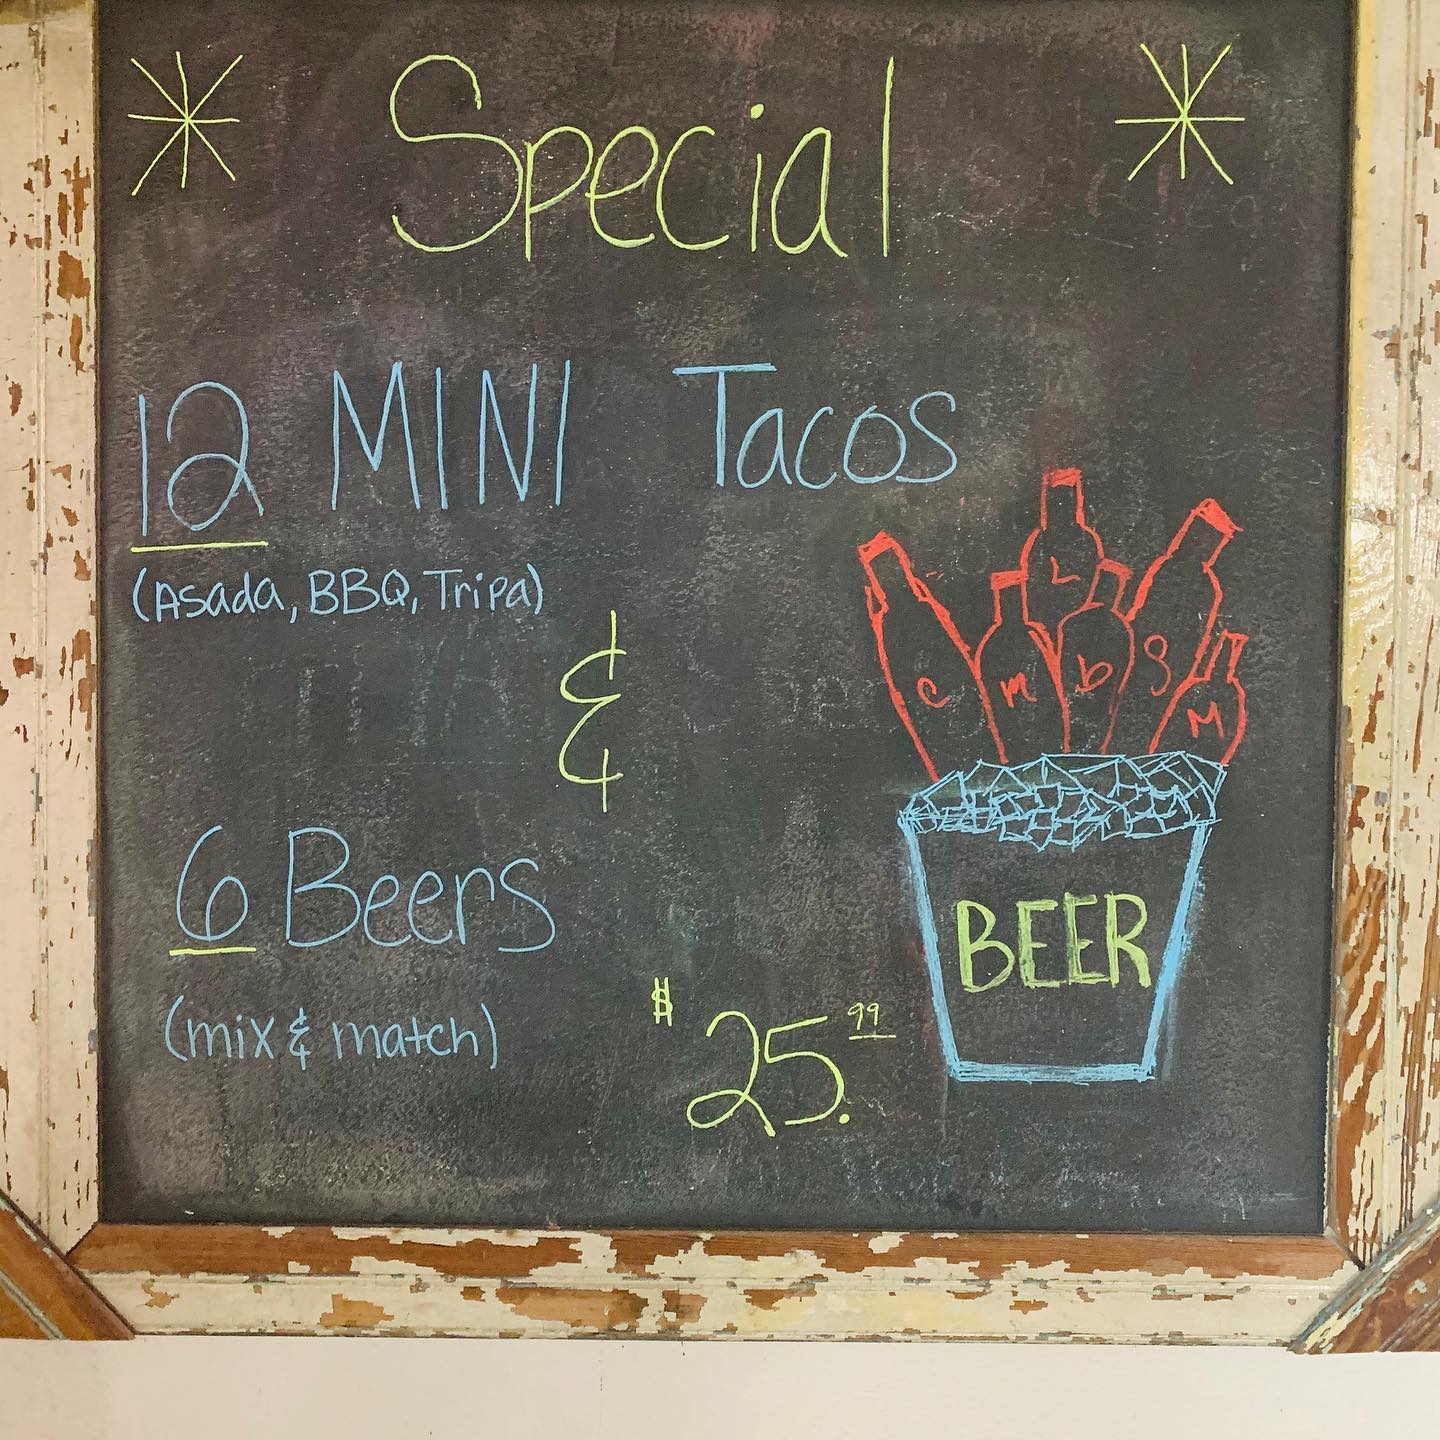 Special
12 MINI Tacos
(Asada, BBQ, Tripa)
&
6 Beers
(mix & match)
$25.99
C m L b S M
BEER